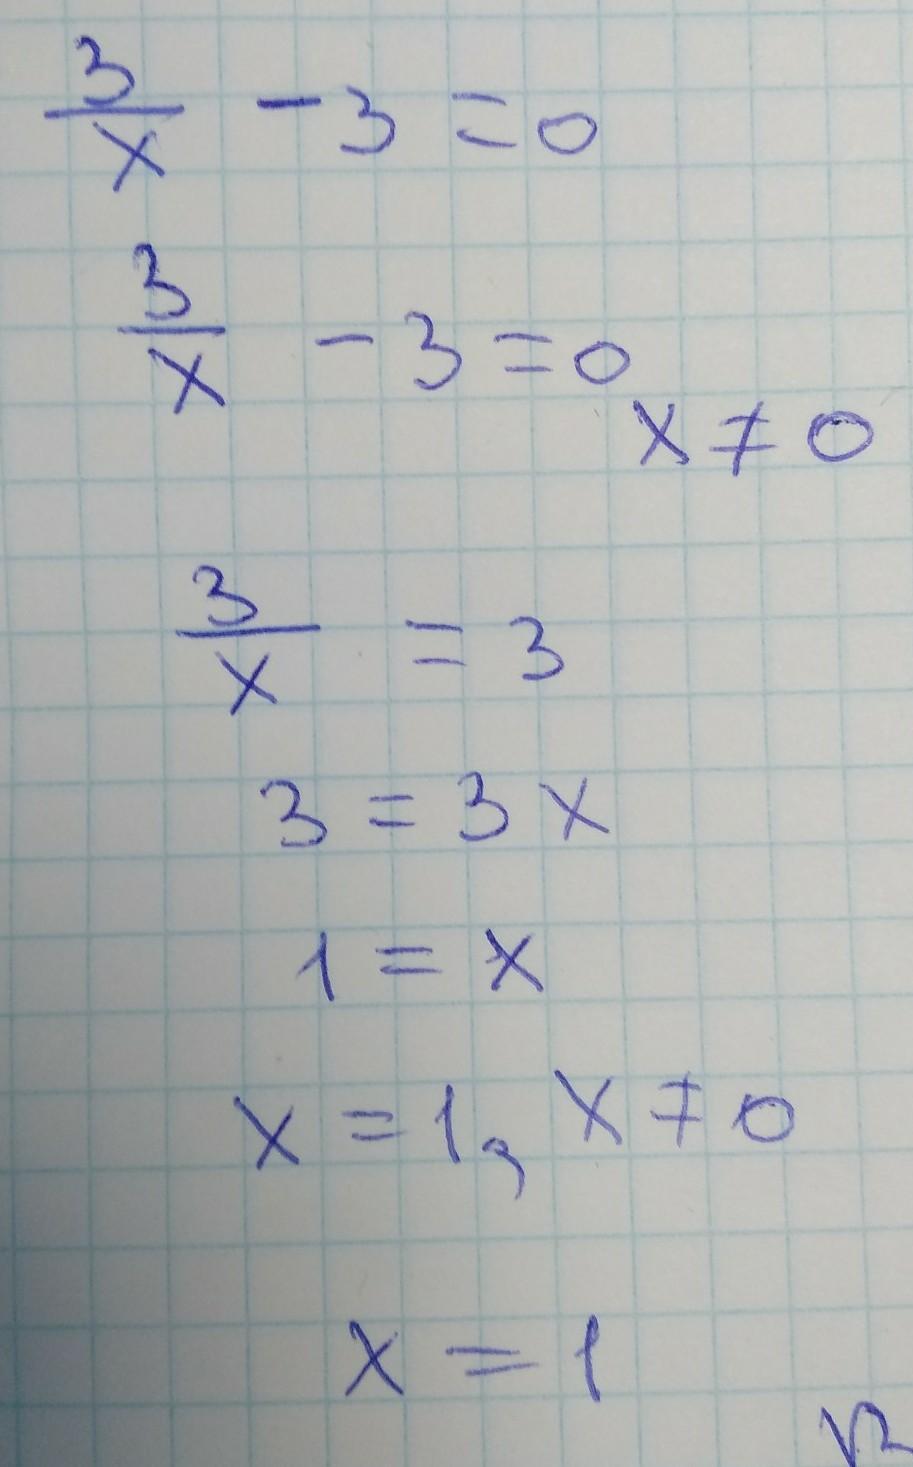 3/x - 3 = 0
3/x - 3 = 0
x ≠ 0
3/x = 3
3 = 3x
1 = x
x = 1, x ≠ 0
x = 1